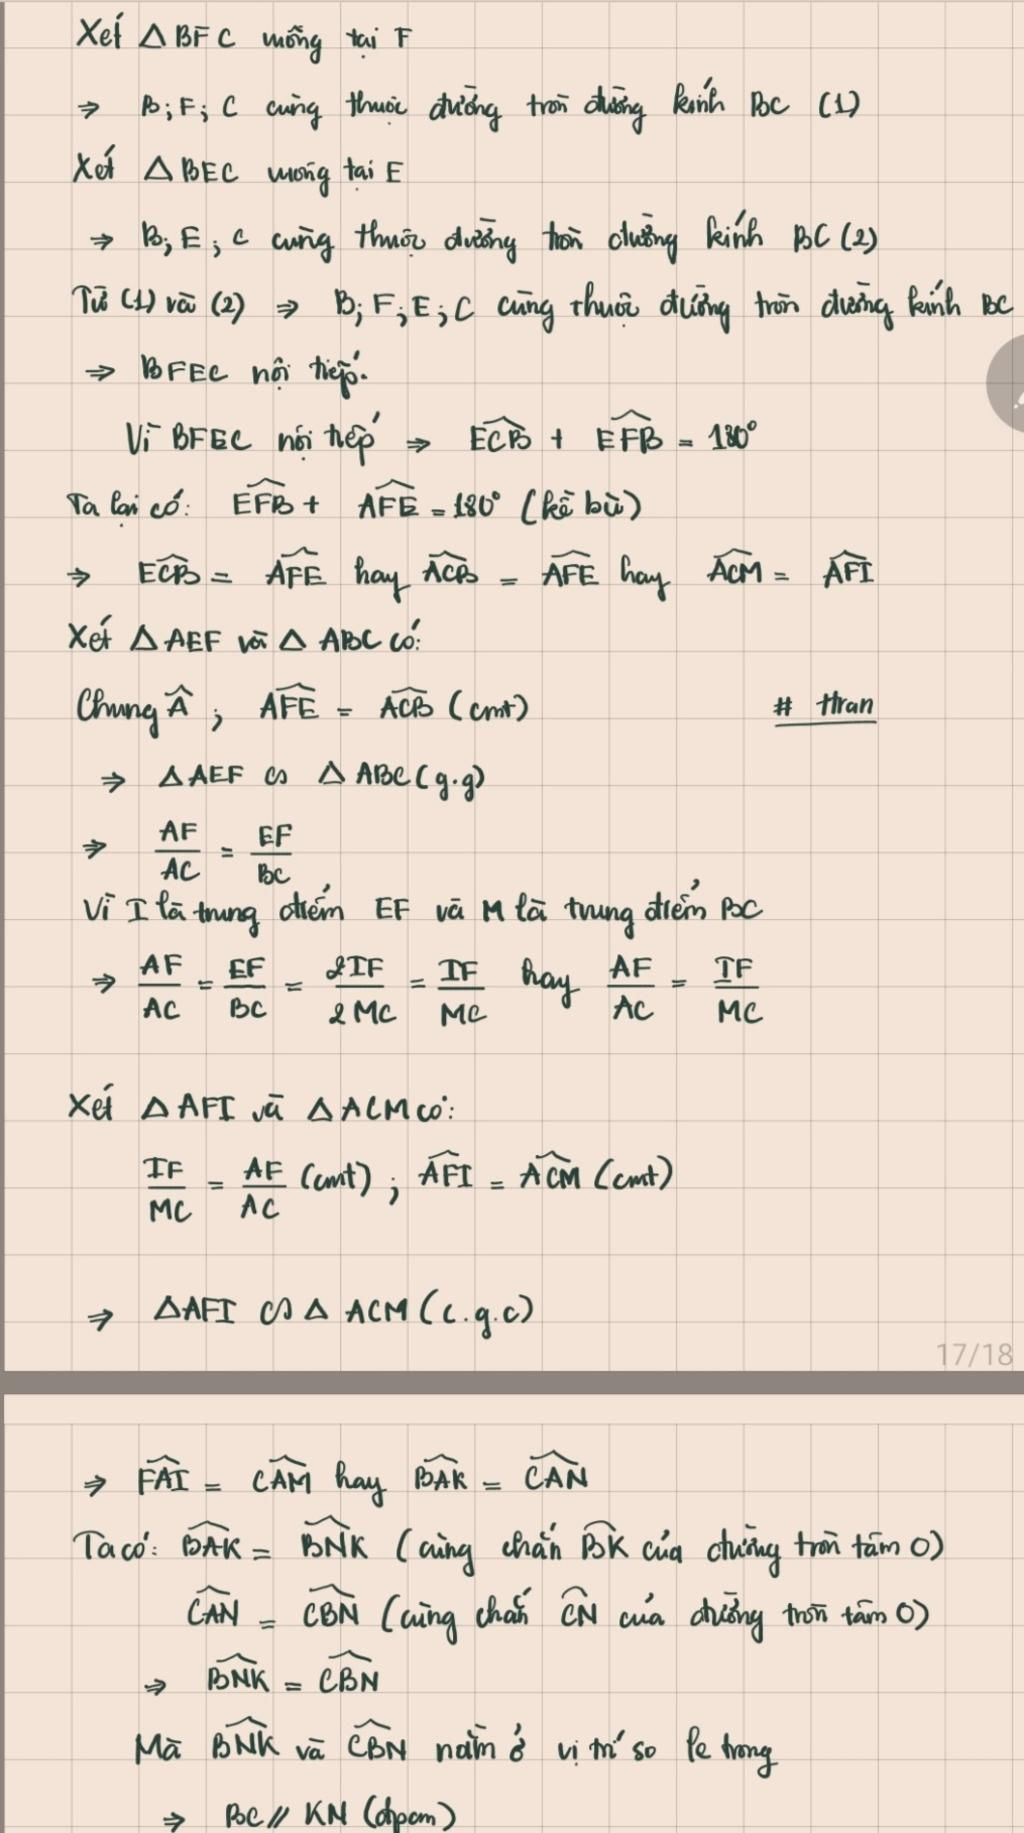 Xét △BFC vuông tại F
⇒ B; F; C cùng thuộc đường tròn đường kính BC (1)
Xét △BEC vuông tại E
⇒ B; E; C cùng thuộc đường tròn đường kính BC (2)
Từ (1) và (2) ⇒ B; F; E; C cùng thuộc đường tròn đường kính BC
⇒ BFEC nội tiếp.
Vì BFEC nội tiếp ⇒ \widehat{ECB} + \widehat{EFB} = 180°
Ta lại có: \widehat{EFB} + \widehat{AFE} = 180° (kề bù)
⇒ \widehat{ECB} = \widehat{AFE} hay \widehat{ACB} = \widehat{AFE} hay \widehat{ACM} = \widehat{AFI}
Xét △AEF và △ABC có:
Chung \widehat{A}; \widehat{AFE} = \widehat{ACB} (cmt) # Hran
⇒ △AEF ∽ △ABC (g.g)
⇒ \frac{AF}{AC} = \frac{EF}{BC}
Vì I là trung điểm EF và M là trung điểm BC
⇒ \frac{AF}{AC} = \frac{EF}{BC} = \frac{2IF}{2MC} = \frac{IF}{MC} hay \frac{AF}{AC} = \frac{IF}{MC}
Xét △AFI và △ACM có:
\frac{IF}{MC} = \frac{AF}{AC} (cmt); \widehat{AFI} = \widehat{ACM} (cmt)
⇒ △AFI ∽ △ACM (c.g.c)
17/18
⇒ \widehat{FAI} = \widehat{CAM} hay \widehat{BAK} = \widehat{CAN}
Ta có: \widehat{BAK} = \widehat{BNK} (cùng chắn \overset{\frown}{BK} của đường tròn tâm O)
\widehat{CAN} = \widehat{CBN} (cùng chắn \overset{\frown}{CN} của đường tròn tâm O)
⇒ \widehat{BNK} = \widehat{CBN}
Mà \widehat{BNK} và \widehat{CBN} nằm ở vị trí so le trong
⇒ BC // KN (đpcm)